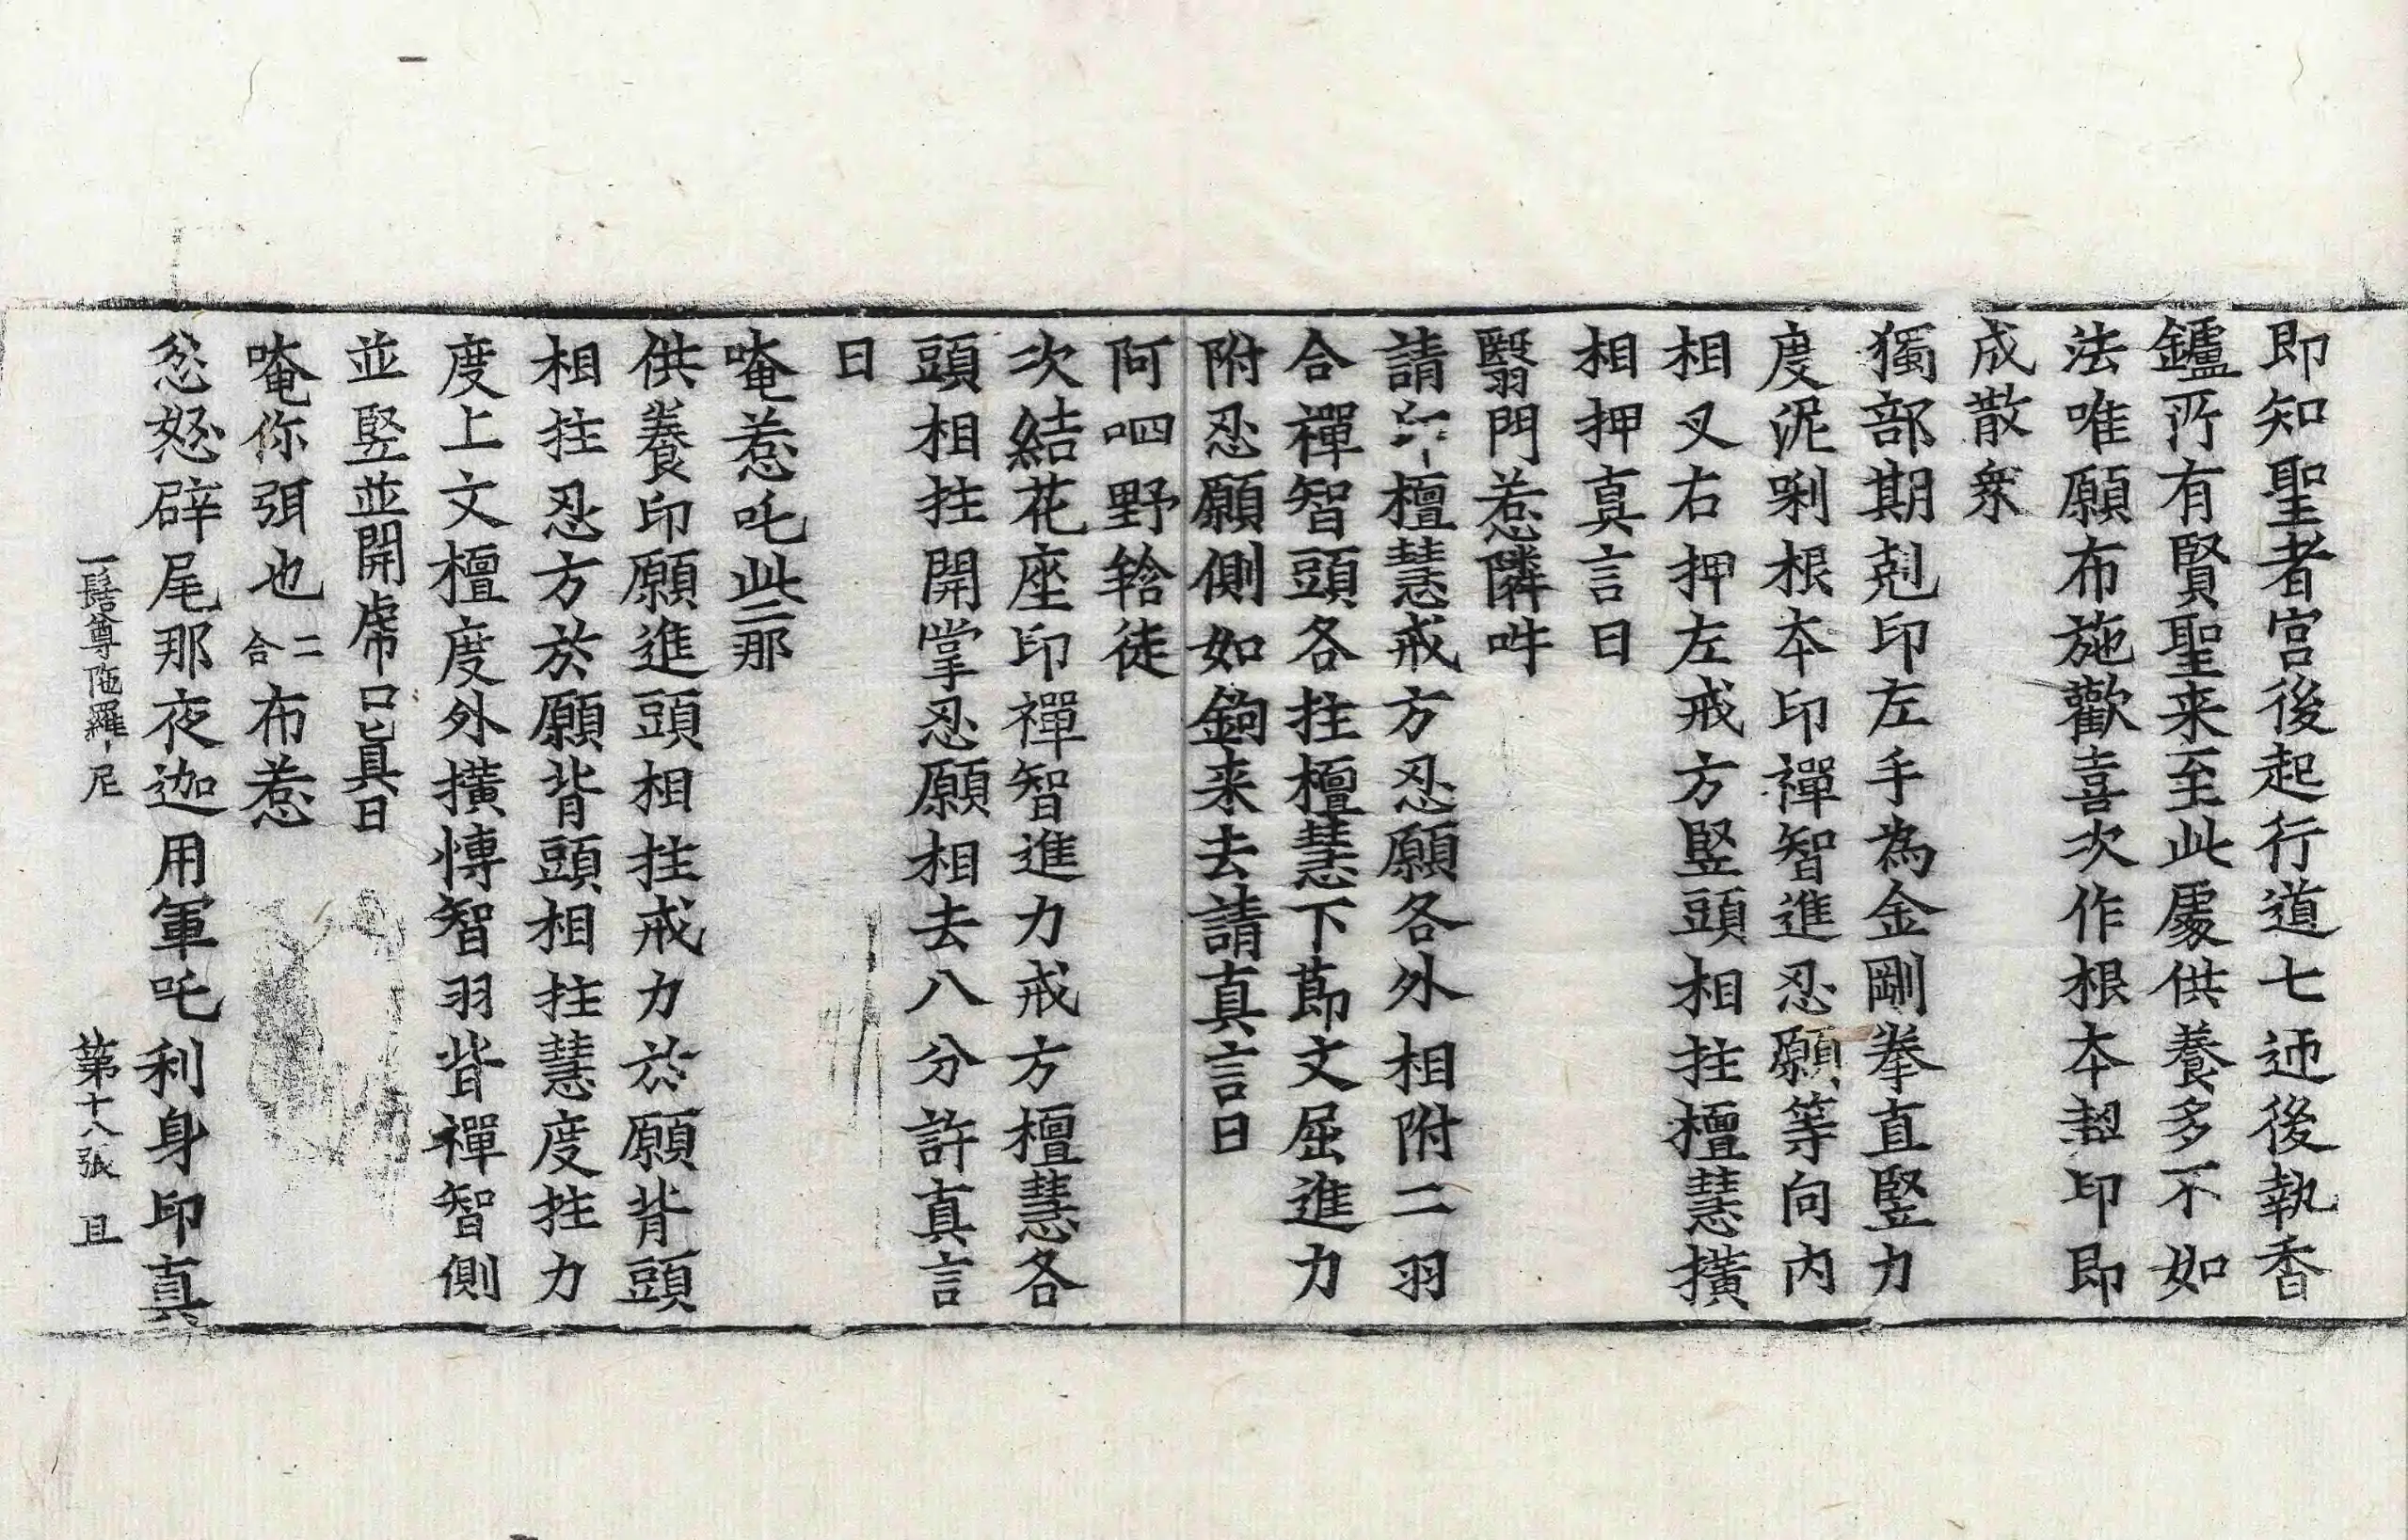 即知聖者宮後起行道七迊後執香
鑪所有賢聖来至此處供養多不如
法唯願布施歡喜次作根本契印即
成散衆
獨部期剋印左手為金剛拳直竪力
度泥唎根本印禪智進忍願等向内
相叉右押左戒方竪頭相拄檀慧擴
相押真言日
翳門惹隣吽
請印檀慧戒方忍願各外相附二羽
合禪智頭各拄檀慧下莭文屈進力
附忍願側如鉤来去請真言日
阿呬野䭾徒
次結花座印禪智進力戒方檀慧各
頭相拄開掌忍願相去八分許真言
日
唵惹吒些二那
供養印願進頭相拄戒力於願背頭
相拄忍方於願背頭相拄慧度拄力
度上文檀度外擴慱智羽背禪智側
並竪並開虎口真日
唵你弭也二合布惹
忿怒辟尾那夜迦用軍吒利身印真
一髻尊陁羅尼　第十八張　且